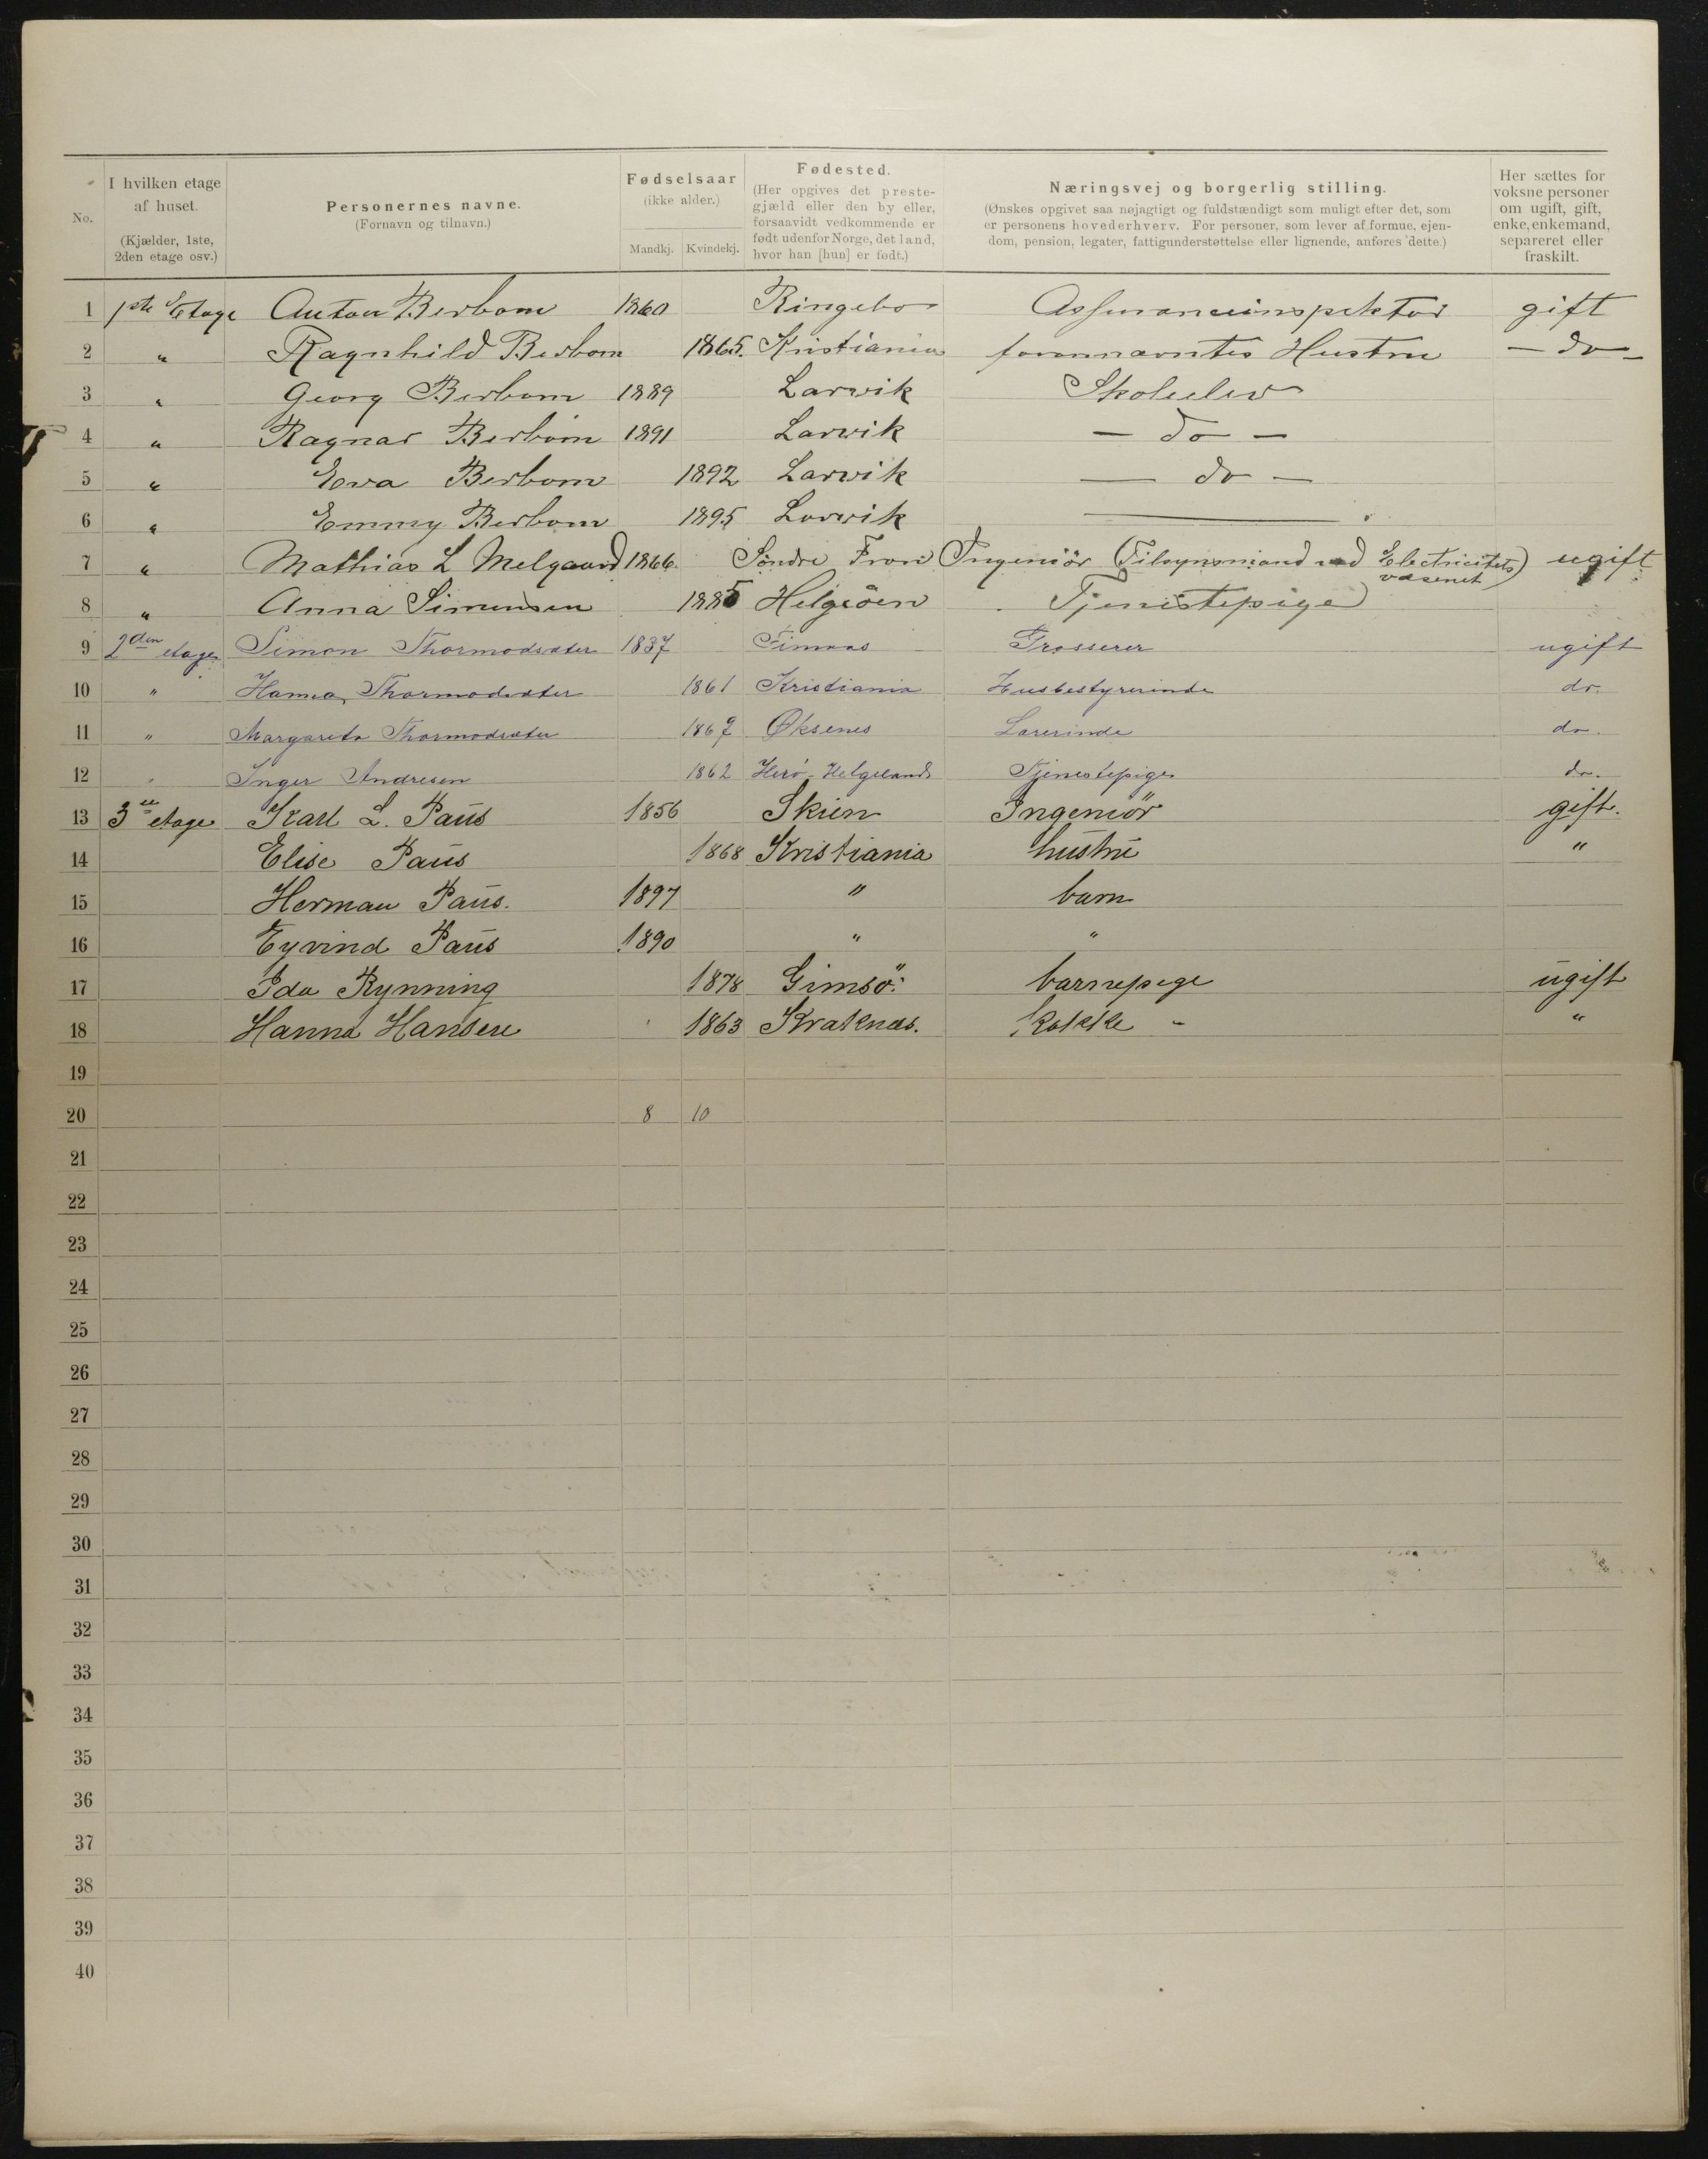 No.
I hvilken etage af huset. (Kjælder, 1ste, 2den etage osv.)
Personernes navne. (Fornavn og tilnavn.)
Fødselsaar (ikke alder.) Mandkj. Kvindekj.
Fødested. (Her opgives det prestegjæld eller den by eller, forsaavidt vedkommende er født udenfor Norge, det land, hvor han [hun] er født.)
Næringsvej og borgerlig stilling. (Ønskes opgivet saa nøjagtigt og fuldstændigt som muligt efter det, som er personens hovederhverv. For personer, som lever af formue, ejendom, pension, legater, fattigunderstøttelse eller lignende, anføres dette.)
Her sættes for voksne personer om ugift, gift, enke, enkemand, separeret eller fraskilt.
1 1ste Etage Anton Berbom 1860 Ringebo Assuranceinspektør gift
2 " Ragnhild Berbom 1865. Kristiania forannævntes Hustru — do —
3 " Georg Berbom 1889 Larvik Skoleelev
4 " Ragnar Berbom 1891 Larvik — do —
5 " Ewa Berbom 1892 Larvik — do —
6 " Emmy Berbom 1895 Larvik —
7 " Mathias L Melgaard 1866. Søndre Fron Ingeniör (Tilsynsmand ved Electricitetsvæsenet) ugift
8 " Anna Simensen 1885 Helgöen Tjenestepige
9 2den etage Simon 1837 Grosserer ugift
10 " Hanna 1861 Kristiania Husbestyrerinde do.
11 " Margareta Øksenes Lærerinde do.
12 " Inger Andresen 1862 Herø - Helgeland Tjenestepige do.
13 3die etage Karl L. Paus 1856 Skien Ingeniör gift.
14 Elise Paus 1868 Kristiania hustru "
15 Herman Paus. 1897 " barn
16 Eyvind Paus 1890 " "
17 Ida Rynning 1878 Gimsö. barnepige ugift
18 Hanna Hansen 1863 Kokke "
19
20 8 10
21
22
23
24
25
26
27
28
29
30
31
32
33
34
35
36
37
38
39
40